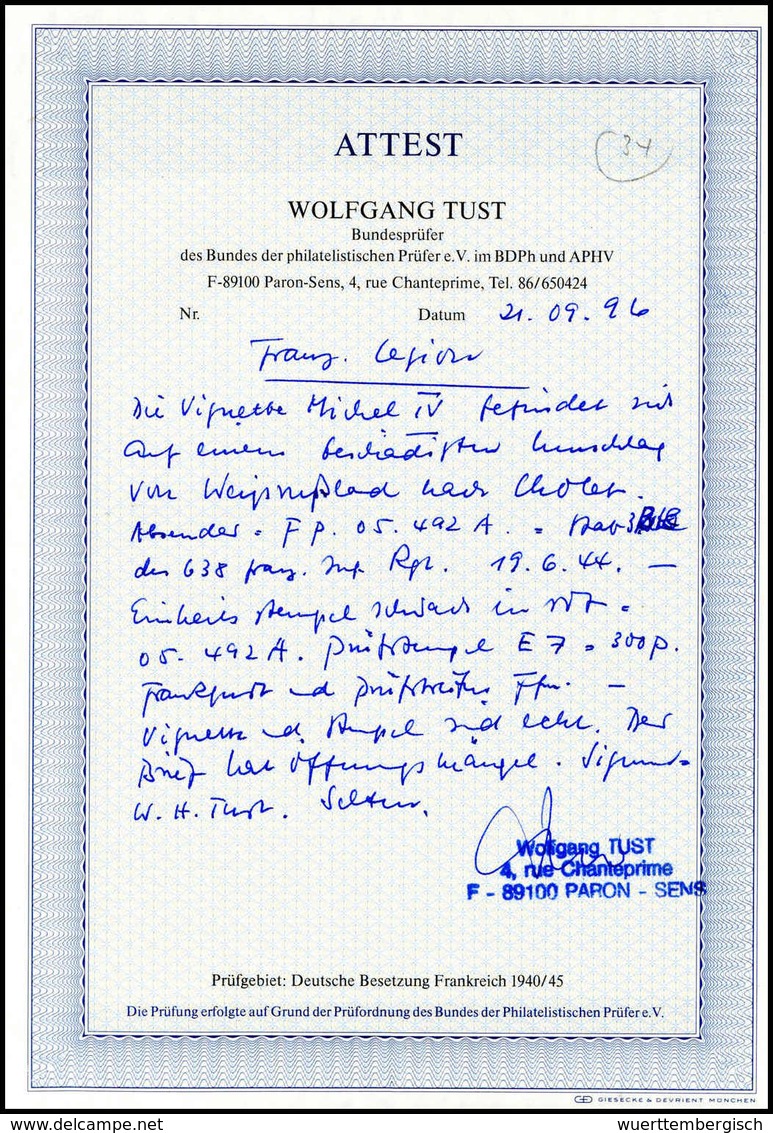 ATTEST
34
WOLFGANG TUST
Bundesprüfer
des Bundes der philatelistischen Prüfer e.V. im BDPh und APHV
F-89100 Paron-Sens, 4, rue Chanteprime, Tel. 86/650424
Nr. Datum 21.09.96
Franz. Legion
Die Vignette Michel IV befindet sich
auf einem beschädigten Umschlag
von Weissrußland nach Cholet.
Absender = F P. 05.492 A. = Stab
des 638 franz. Inf. Rgt. 19.6.44. —
Einheitsstempel schwach in rot =
05.492 A. Prüfstempel E 7 =
Frankfurt und Prüfstreifen Ffm. —
Vignette und Stempel sind echt. Der
Brief hat Öffnungsmängel. Signum =
W. H. Tust. Selten.
Wolfgang TUST
4, rue Chanteprime
F - 89100 PARON - SENS
Prüfgebiet: Deutsche Besetzung Frankreich 1940/45
Die Prüfung erfolgte auf Grund der Prüfordnung des Bundes der Philatelistischen Prüfer e.V.
GIESECKE & DEVRIENT MÜNCHEN
www.delcampe.net wuerttembergisch